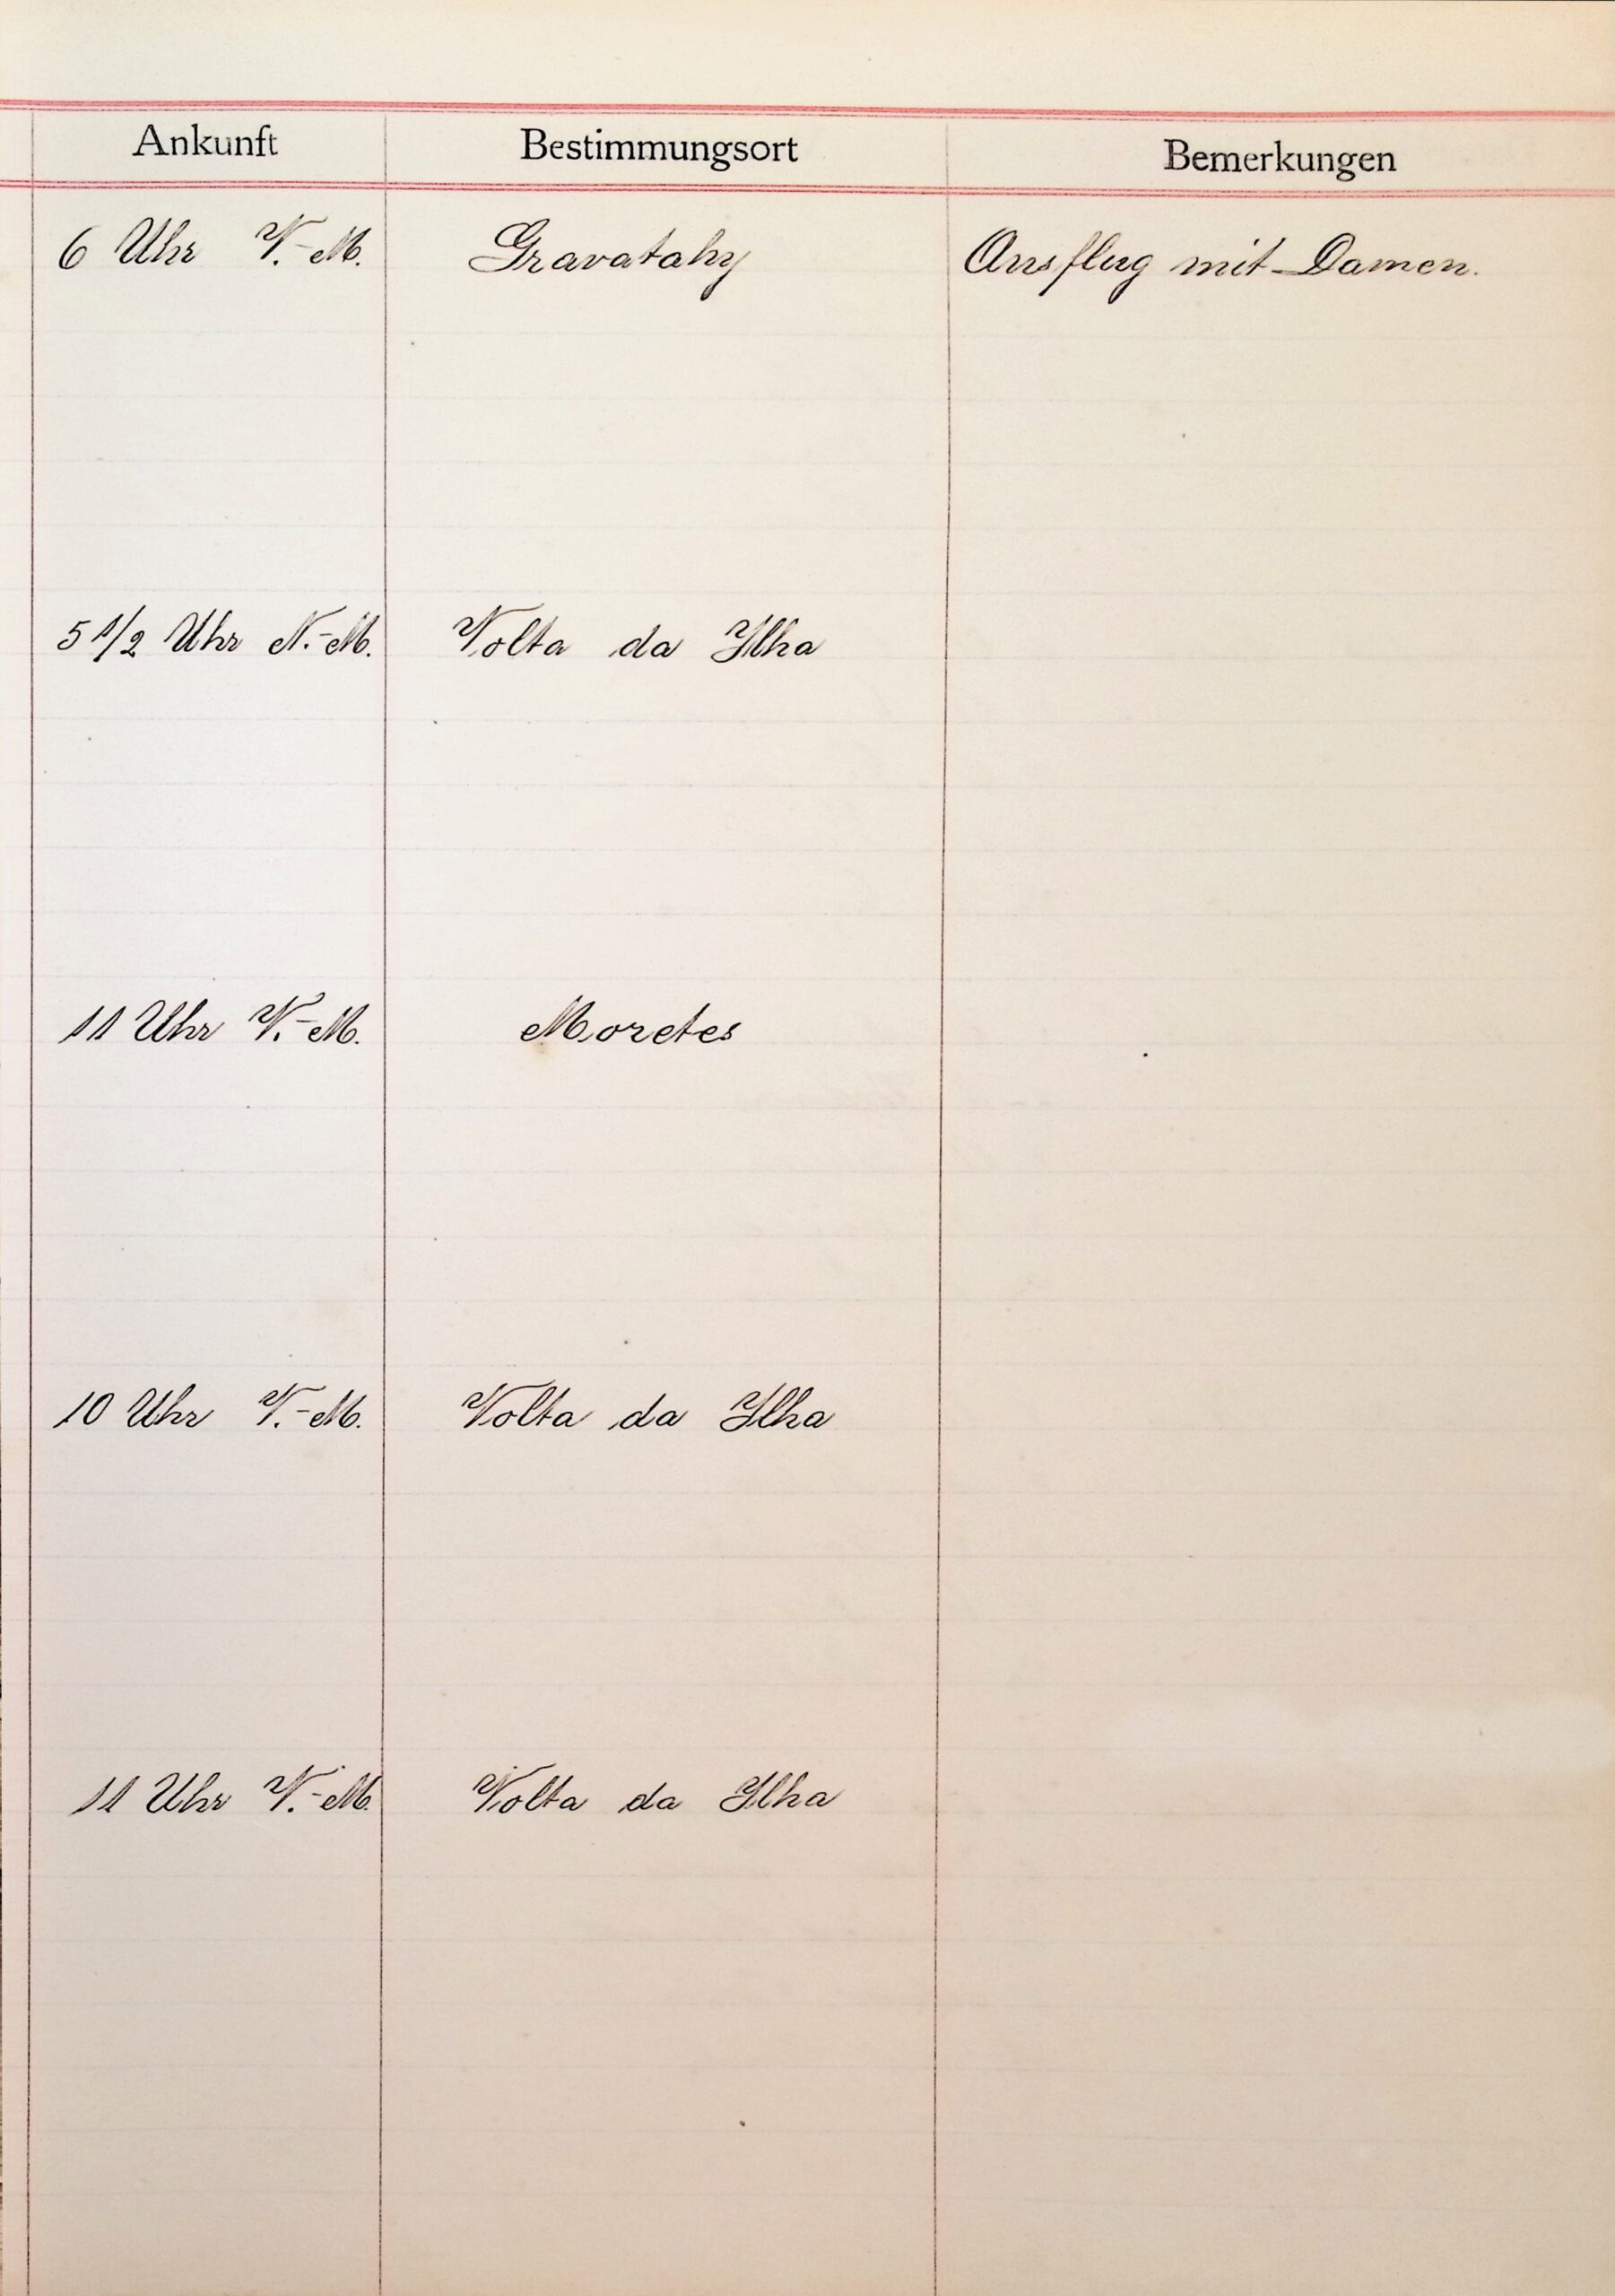 Ankunft Bestimmungsort Bemerkungen
6 Uhr V.-M. Gravatahy Ausflug mit Damen.
5 1/2 Uhr N.-M. Volta da Ilha
11 Uhr V.-M. Moretes
10 Uhr V.-M. Volta da Ilha
11 Uhr V.-M. Volta da Ilha